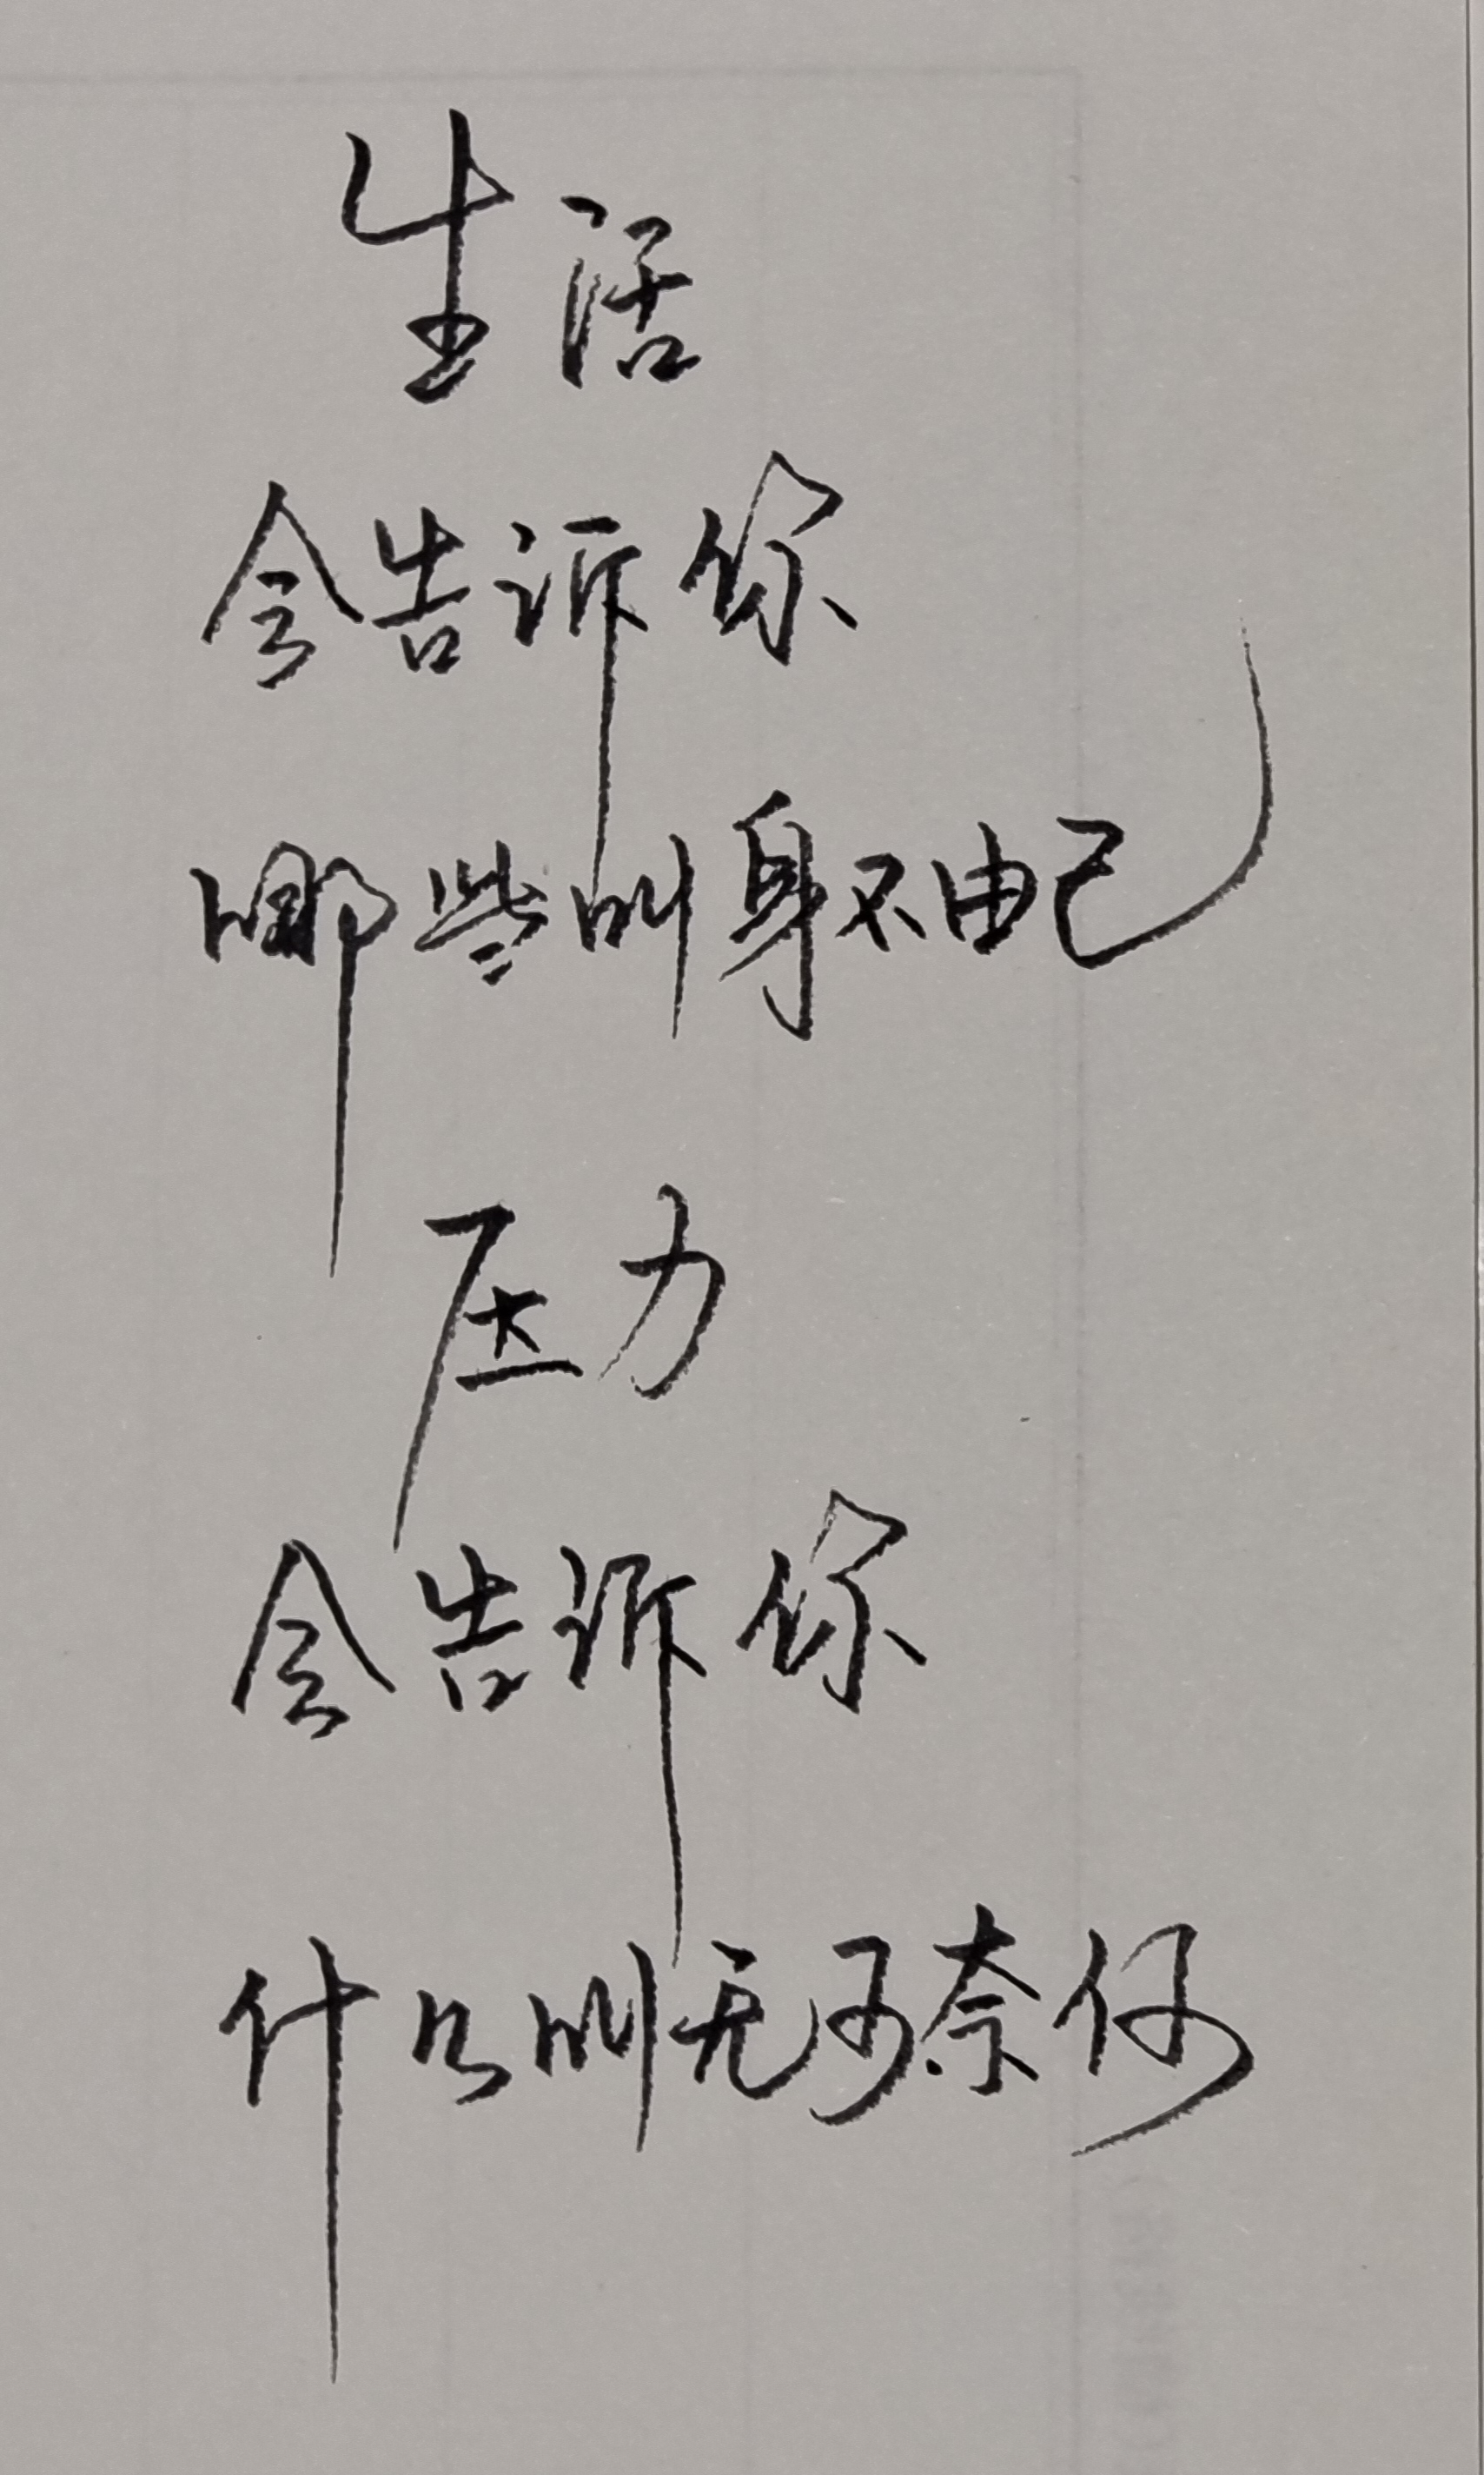 生活
会告诉你
哪些叫身不由己
压力
会告诉你
什么叫无可奈何